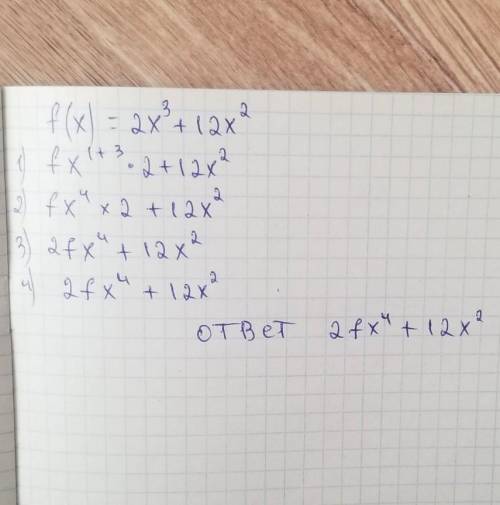 f(x) = 2x³ + 12x²
1) fx¹⁺³ · 2 + 12x²
2) fx⁴ × 2 + 12x²
3) 2fx⁴ + 12x²
4) 2fx⁴ + 12x²
ответ 2fx⁴ + 12x²